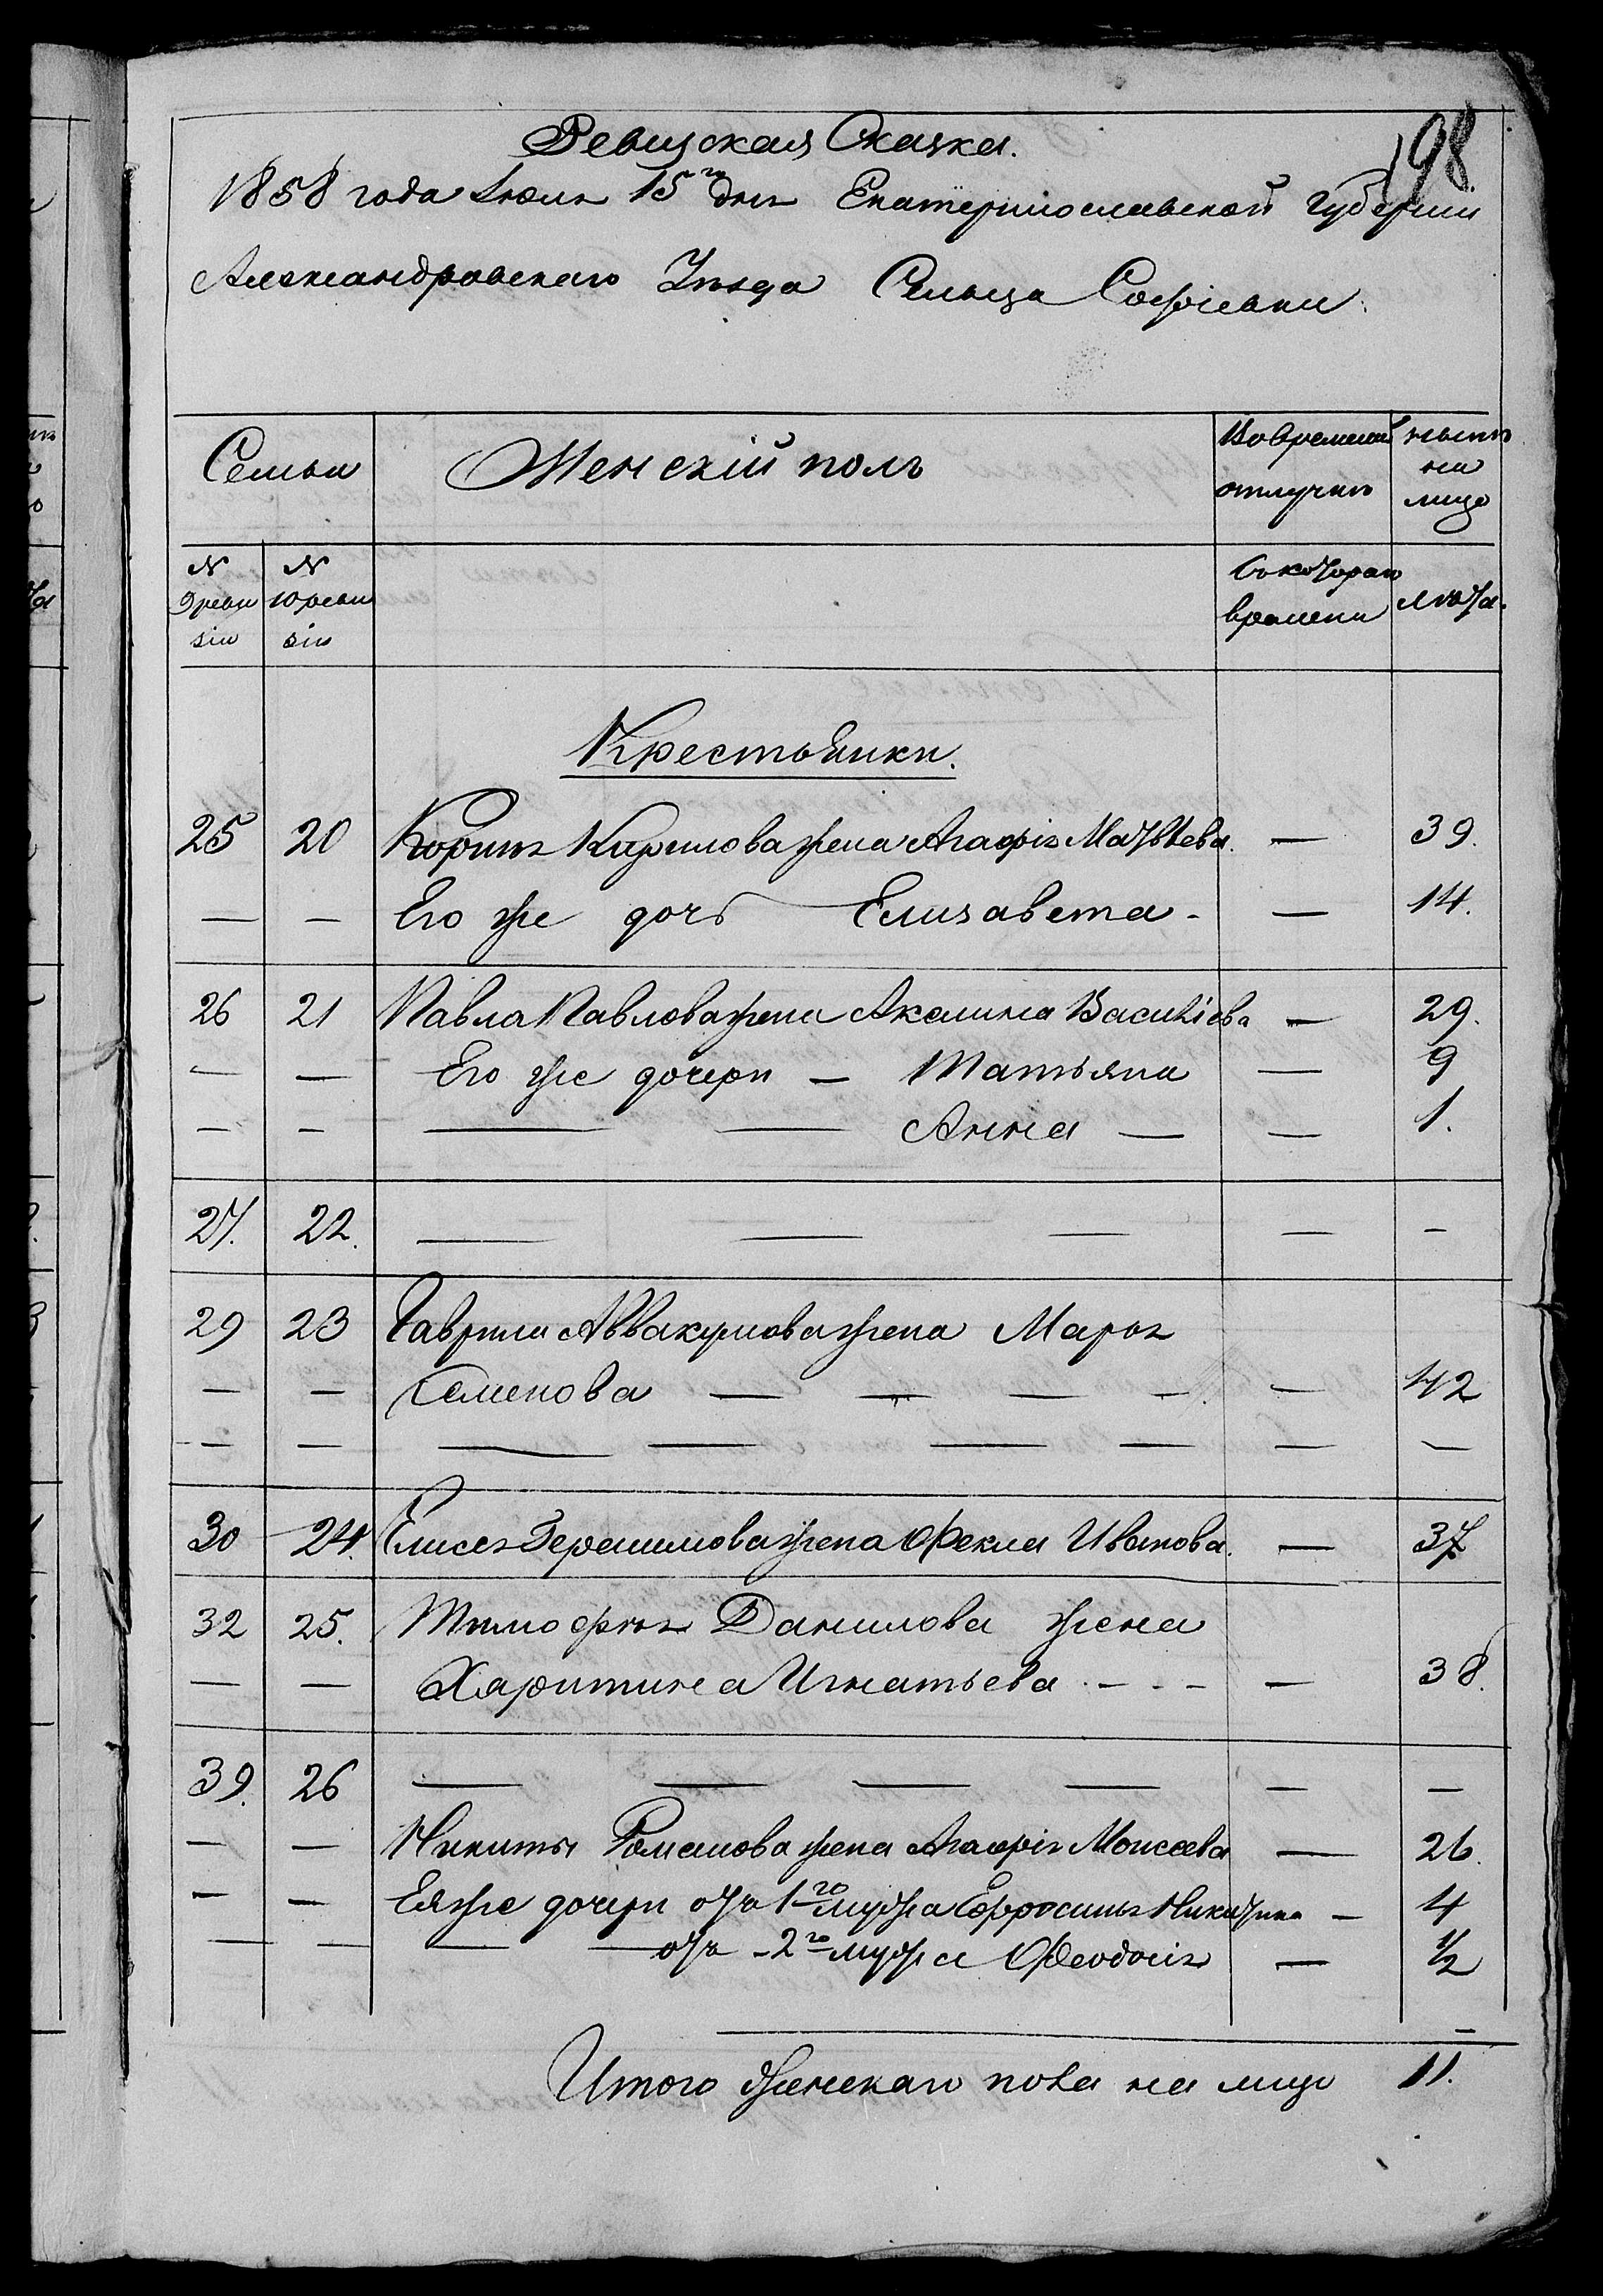 198.
Ревизская Сказка.
1858 года Iюля 15го дня Екатеринославской губернiи
Александровскаго Уѣзда Сельца Софiевки.
Семьи Женскiй полъ Во временной отлучкѣ нынѣ на лицо
N 9 ревизiи N 10 ревизiи Съ котораго времени лѣта.
Крестьянки.
25 20 Корнѣя Кирилова жена Агафiя Матвѣева. — 39.
— — Его же дочь Елизавета - — 14.
26 21 Павла Павлова жена Акилина Василiева — 29.
— — Его же дочери — Татьяна — 9
— — — — Анна — — 1.
27. 22. — — — — -
29 23 Гаврилы Аввакумова жена Марья
— — Семенова — — — - — 42
— — — — — — — —
30 24. Елисея Герасимова жена Фекла Иванова. — 37
32 25. Тимофея Данилова жена
— — Харитина Игнатьева - - - — 38.
39. 26 — — — — — —
— — Никиты Романова жена Агафiя Моисеева — 26.
— — Ея же дочери отъ 1го мужа Ефросинья Никитина — 4
— — — — отъ - 2го мужа Феодосiя — 1/2
Итого женскаго пола на лицо 11.